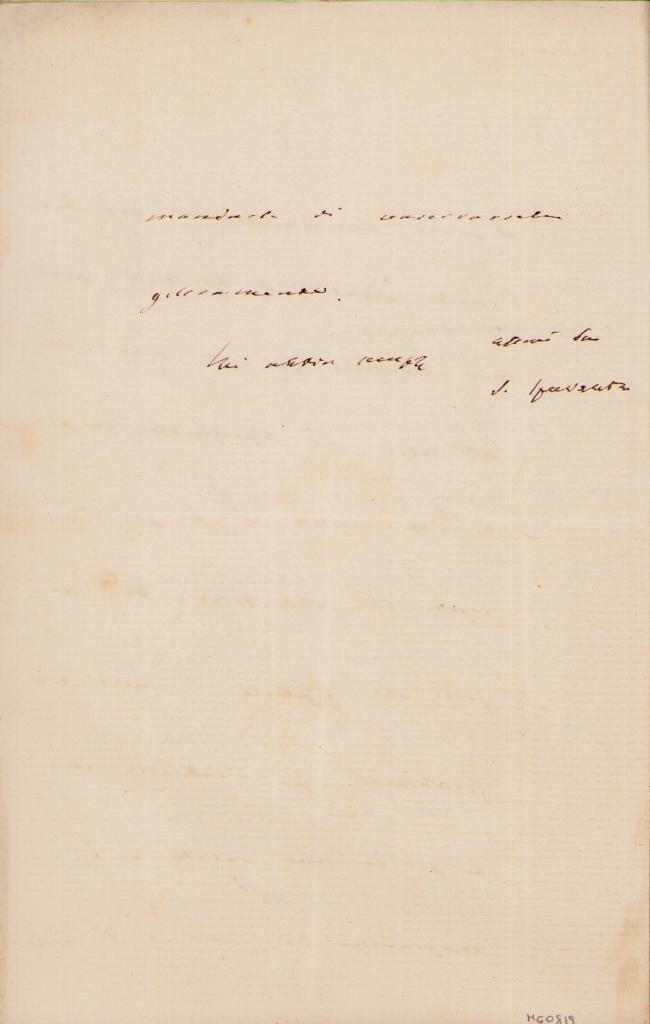 mandarle di conservarsela
gelosamente.
Mi abbia sempre
affmo suo
S. Spaventa
MG0819